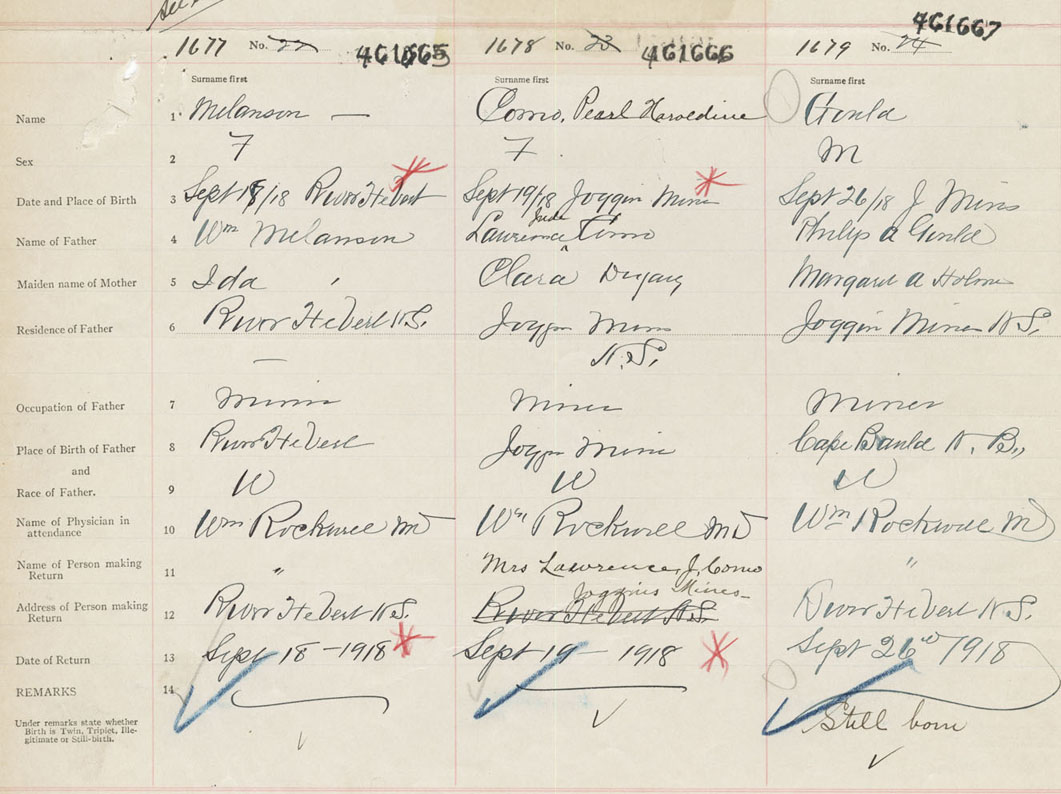 See
1677 No. 22 461665
1678 No. 23 461666
1679 No. 24 461667
Surname first Surname first Surname first
Name 1 Melanson — Como, Pearl Haroldine Gould
Sex 2 F F M
Date and Place of Birth 3 Sept 18/18 River Hebert Sept 19/18 Joggin Mines Sept 26/18 J Mines
Jude
Name of Father 4 Wm Melanson Lawrence ^ Como Philip A Gould
Maiden name of Mother 5 Ida Clara Margaret A Holmes
Residence of Father 6 River Hebert N.S. Joggin Mines Joggin Mines N.S.
— N.S.
Occupation of Father 7 Miner Miner Miner
Place of Birth of Father 8 River Hebert Joggin Mines Cape Bauld N.B.,
and
Race of Father. 9 W W W
Name of Physician in attendance 10 Wm Rockwell MD Wm Rockwell MD Wm Rockwell MD
Name of Person making Return 11 " Mrs Lawrence, J, Como "
Joggins Mines
Address of Person making Return 12 River Hebert N.S. River Hebert N.S. River Hebert N.S.
Date of Return 13 Sept 18 - 1918 Sept 19 - 1918 Sept 26th 1918
REMARKS 14
Under remarks state whether Birth is Twin, Triplet, Illegitimate or Still-birth. Still born